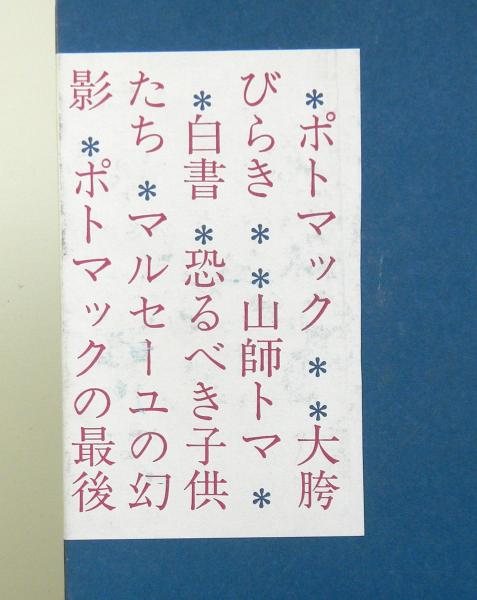 *ポトマック **大胯
びらき **山師トマ *
*白書 *恐るべき子供
たち *マルセーユの幻
影 *ポトマックの最後